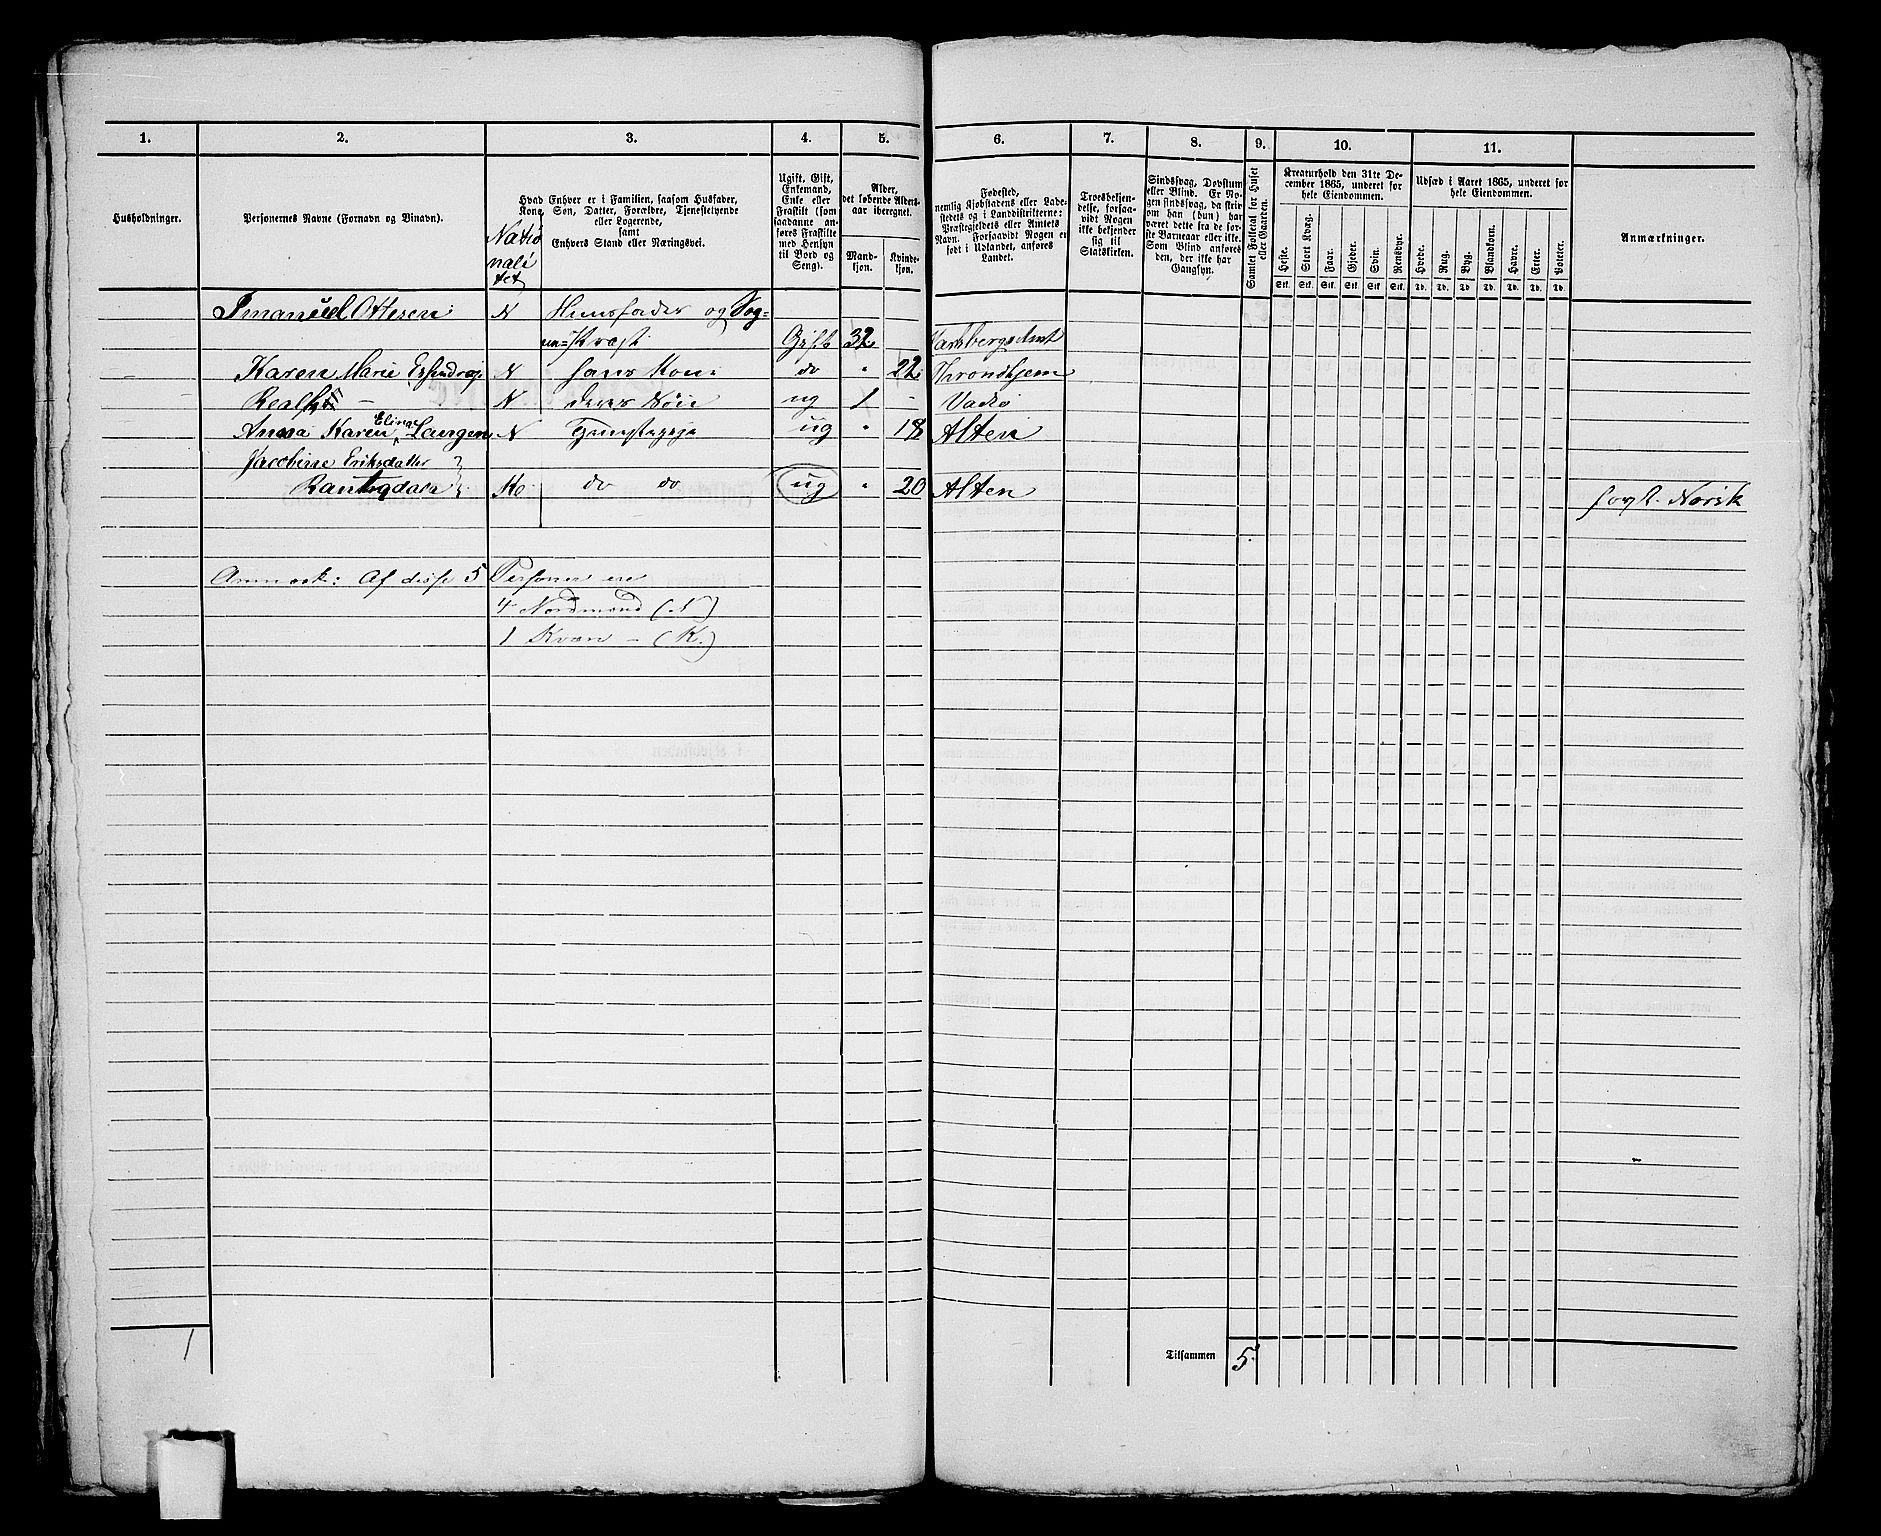 1. 2. 3. 4. 5. 6. 7. 8. 9. 10. 11.
Husholdninger.
Personernes Navne (Fornavn og Binavn).
Hvad Enhver er i Familien, saasom Husfader,
Kone, Søn, Datter, Forældre, Tjenestetyende
eller Logerende,
samt
Enhvers Stand eller Næringsvei.
Natio
nali
tet
Ugift, Gift,
Enkemand,
Enke eller
Fraskilt (som
saadanne an-
føres Fraskilte
med Hensyn
til Bord og
Seng).
Alder,
det løbende Alders-
aar iberegnet.
Mand-
kjøn.
Kvinde-
kjøn.
Fødested,
nemlig Kjøbstadens eller Lade-
stedets og i Landdistrikterne:
Præstegjeldets eller Amtets
Navn. Forsaavidt Nogen er
født i Udlandet, anføres
Landet.
Troesbekjen-
delse, forsaa-
vidt Nogen
ikke bekjender
sig til
Statskirken.
Sindssvag, Døvstum
eller Blind. Er No-
gen sindssvag, da skriv
om han (hun) har
været dette fra de før-
ste Barneaar eller ikke.
Som Blind anføres
den, der ikke har
Gangsyn.
Samlet Folketal for Huset
eller Gaarden.
Kreaturhold den 31te De-
cember 1865, underet for
hele Eiendommen.
Heste. Stort Kvæg. Faar. Gjeder. Svin. Rensdyr.
Stk. Stk. Stk. Stk. Stk. Stk.
Udsæd i Aaret 1865, underet for
hele Eiendommen.
Hvede. Rug. Byg. Blandkorn. Havre. Erter. Poteter.
Td. Td. Td. Td. Td. Td. Td.
Anmærkninger.
Imanuel Ottesen N Huusfader og Sog-
ne-Præst Gift 32
Karen Marie N hans Kone do " 22 Throndhjem
N deres Søn ug 1 - Vadsø
Anna Karen Eline Langen N Tjenstepige ug " 18 Alten
Jacobine Eriksdatter
do do ug " 20 Alten Norsk
Anmærk: Af disse 5 Personer ere
4 Nordmænd (N)
1 Kvæn - (K.)
1
Tilsammen 5.